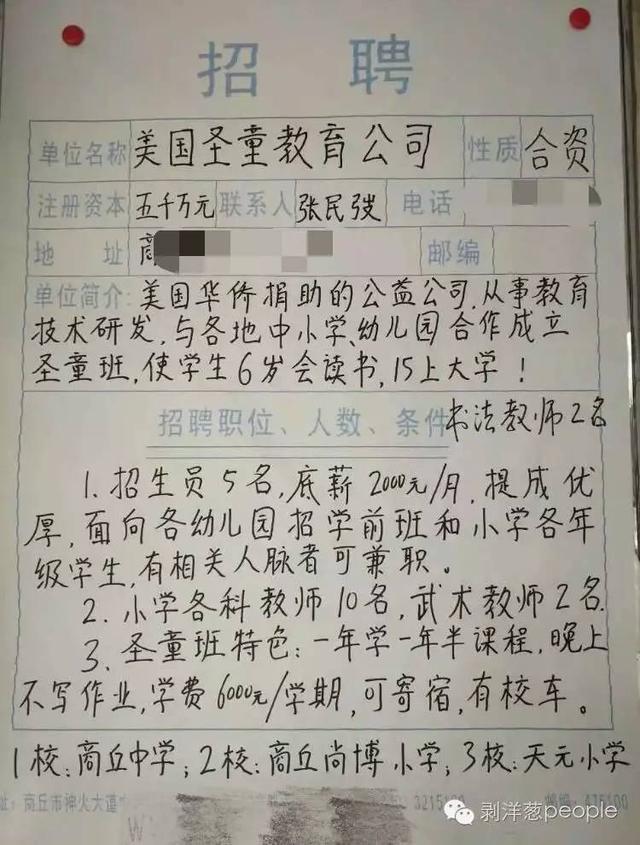 招 聘
单位名称 美国圣童教育公司 性质 合资
注册资本 五千万元 联系人 张民弢 电话
地 址 商 邮编
单位简介: 美国华侨捐助的公益公司,从事教育
技术研发,与各地中小学、幼儿园合作成立
圣童班,使学生6岁会读书,15上大学!
招聘职位、人数、条件 书法教师2名
1. 招生员5名,底薪2000元/月,提成优
厚,面向各幼儿园招学前班和小学各年
级学生,有相关人脉者可兼职。
2. 小学各科教师10名,武术教师2名.
3. 圣童班特色:一年学一年半课程,晚上
不写作业,学费6000元/学期,可寄宿,有校车。
1校:商丘中学;2校:商丘尚博小学;3校:天元小学
址:商丘市神火大道
剥洋葱people